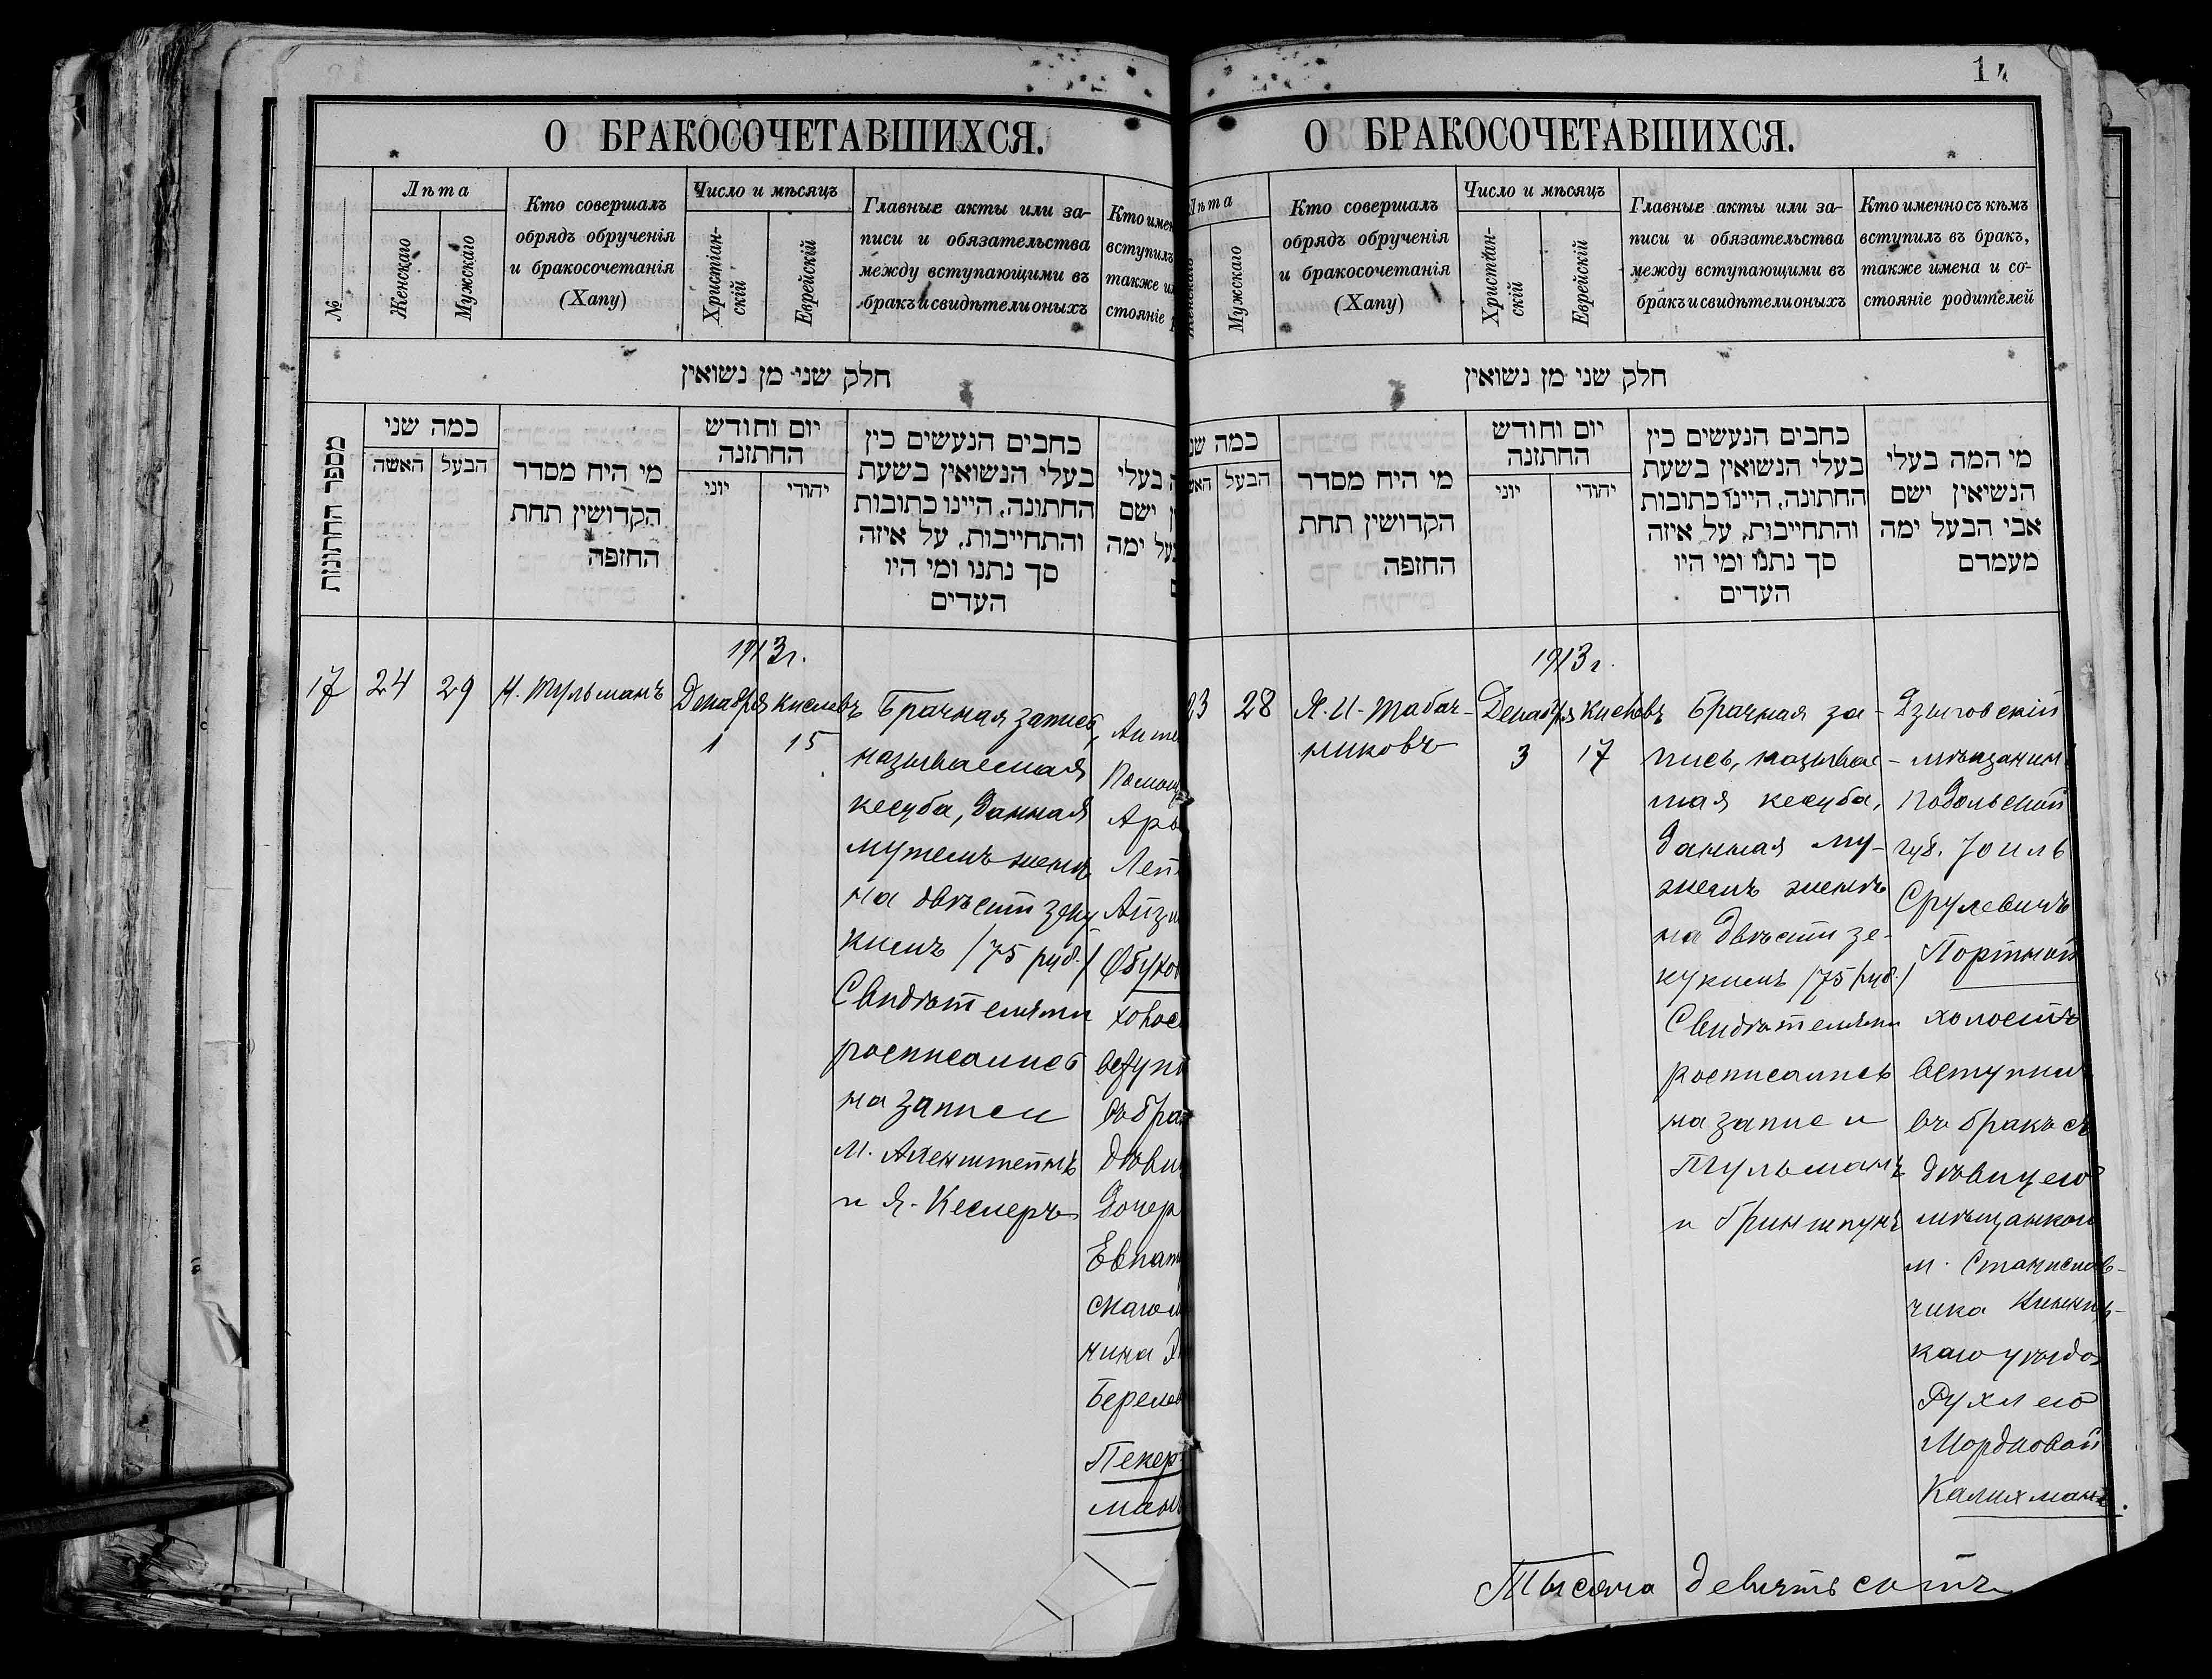 О БРАКОСОЧЕТАВШИХСЯ.
№
Лѣта
Женскаго
Мужскаго
Кто совершалъ
обрядъ обрученія
и бракосочетанія
(Хапу)
Число и мѣсяцъ
Христіан-
скій
Еврейскій
Главные акты или за-
писи и обязательства
между вступающими въ
бракъ и свидѣтели оныхъ
Кто имен
вступилъ
также и
стояніе
חלק שני מן נשואין
מספר החתונות
כמה שני
האשה
הבעל
מי היח מסדר
הקדושין תחת
החופה
יום וחודש
החתונה
יוני
יהודי
כחבים הנעשים בין
בעלי הנשואין בשעת
החתונה, היינו כתובות
והתחייבות, על איזה
סך נתנו ומי היו
העדים
בעלי
ישם
בעל ימה
1913 г.
17
24
29
Н. Тульманъ
Декабря
1
Кислевъ
15
Брачная запись,
называемая
кесуба, данная
мужемъ женѣ
на двѣсти зеку
кимъ /75 руб./
Свидѣтелями
росписались
на записи
М. Аленштейнъ
и Я. Кеслеръ
Помощ
Обухов
вступи
въ бра
дѣви
дочер
Евпат
скаго
чина
Береле
Пекер
ман
14
О БРАКОСОЧЕТАВШИХСЯ.
Лѣта
Женскаго
Мужскаго
Кто совершалъ
обрядъ обрученія
и бракосочетанія
(Хапу)
Число и мѣсяцъ
Христіан-
скій
Еврейскій
Главные акты или за-
писи и обязательства
между вступающими въ
бракъ и свидѣтели оныхъ
Кто именно съ кѣмъ
вступилъ въ бракъ,
также имена и со-
стояніе родителей
חלק שני מן נשואין
כמה שני
הבעל
מי היח מסדר
הקדושין תחת
החופה
יום וחודש
החתונה
יוני
יהודי
כחבים הנעשים בין
בעלי הנשואין בשעת
החתונה, היינו כתובות
והתחייבות, על איזה
סך נתנו ומי היו
העדים
מי המה בעלי
הנשיאין ישם
אבי הבעל ימה
מעמדם
1913 г.
23
28
Я. И. Табач-
никовъ
Декабря
3
Кислевъ
17
Брачная за-
пись, называе-
мая кесуба,
данная му-
жемъ женѣ
на двѣсти зе-
кукимъ /75 руб./
Свидѣтелями
росписались
на записи
Тульманъ
и Гриншпунъ
Дзыговскій
мѣщанин
Подольской
губ. Іоиль
Срулевичъ
Портной
холостъ
вступил
въ бракъ съ
дѣвицею
мѣщанкою
м. Станислав-
чика
каго уѣзда
Рухлею
Мордковой
Калихманъ.
Тысяча девятьсотъ